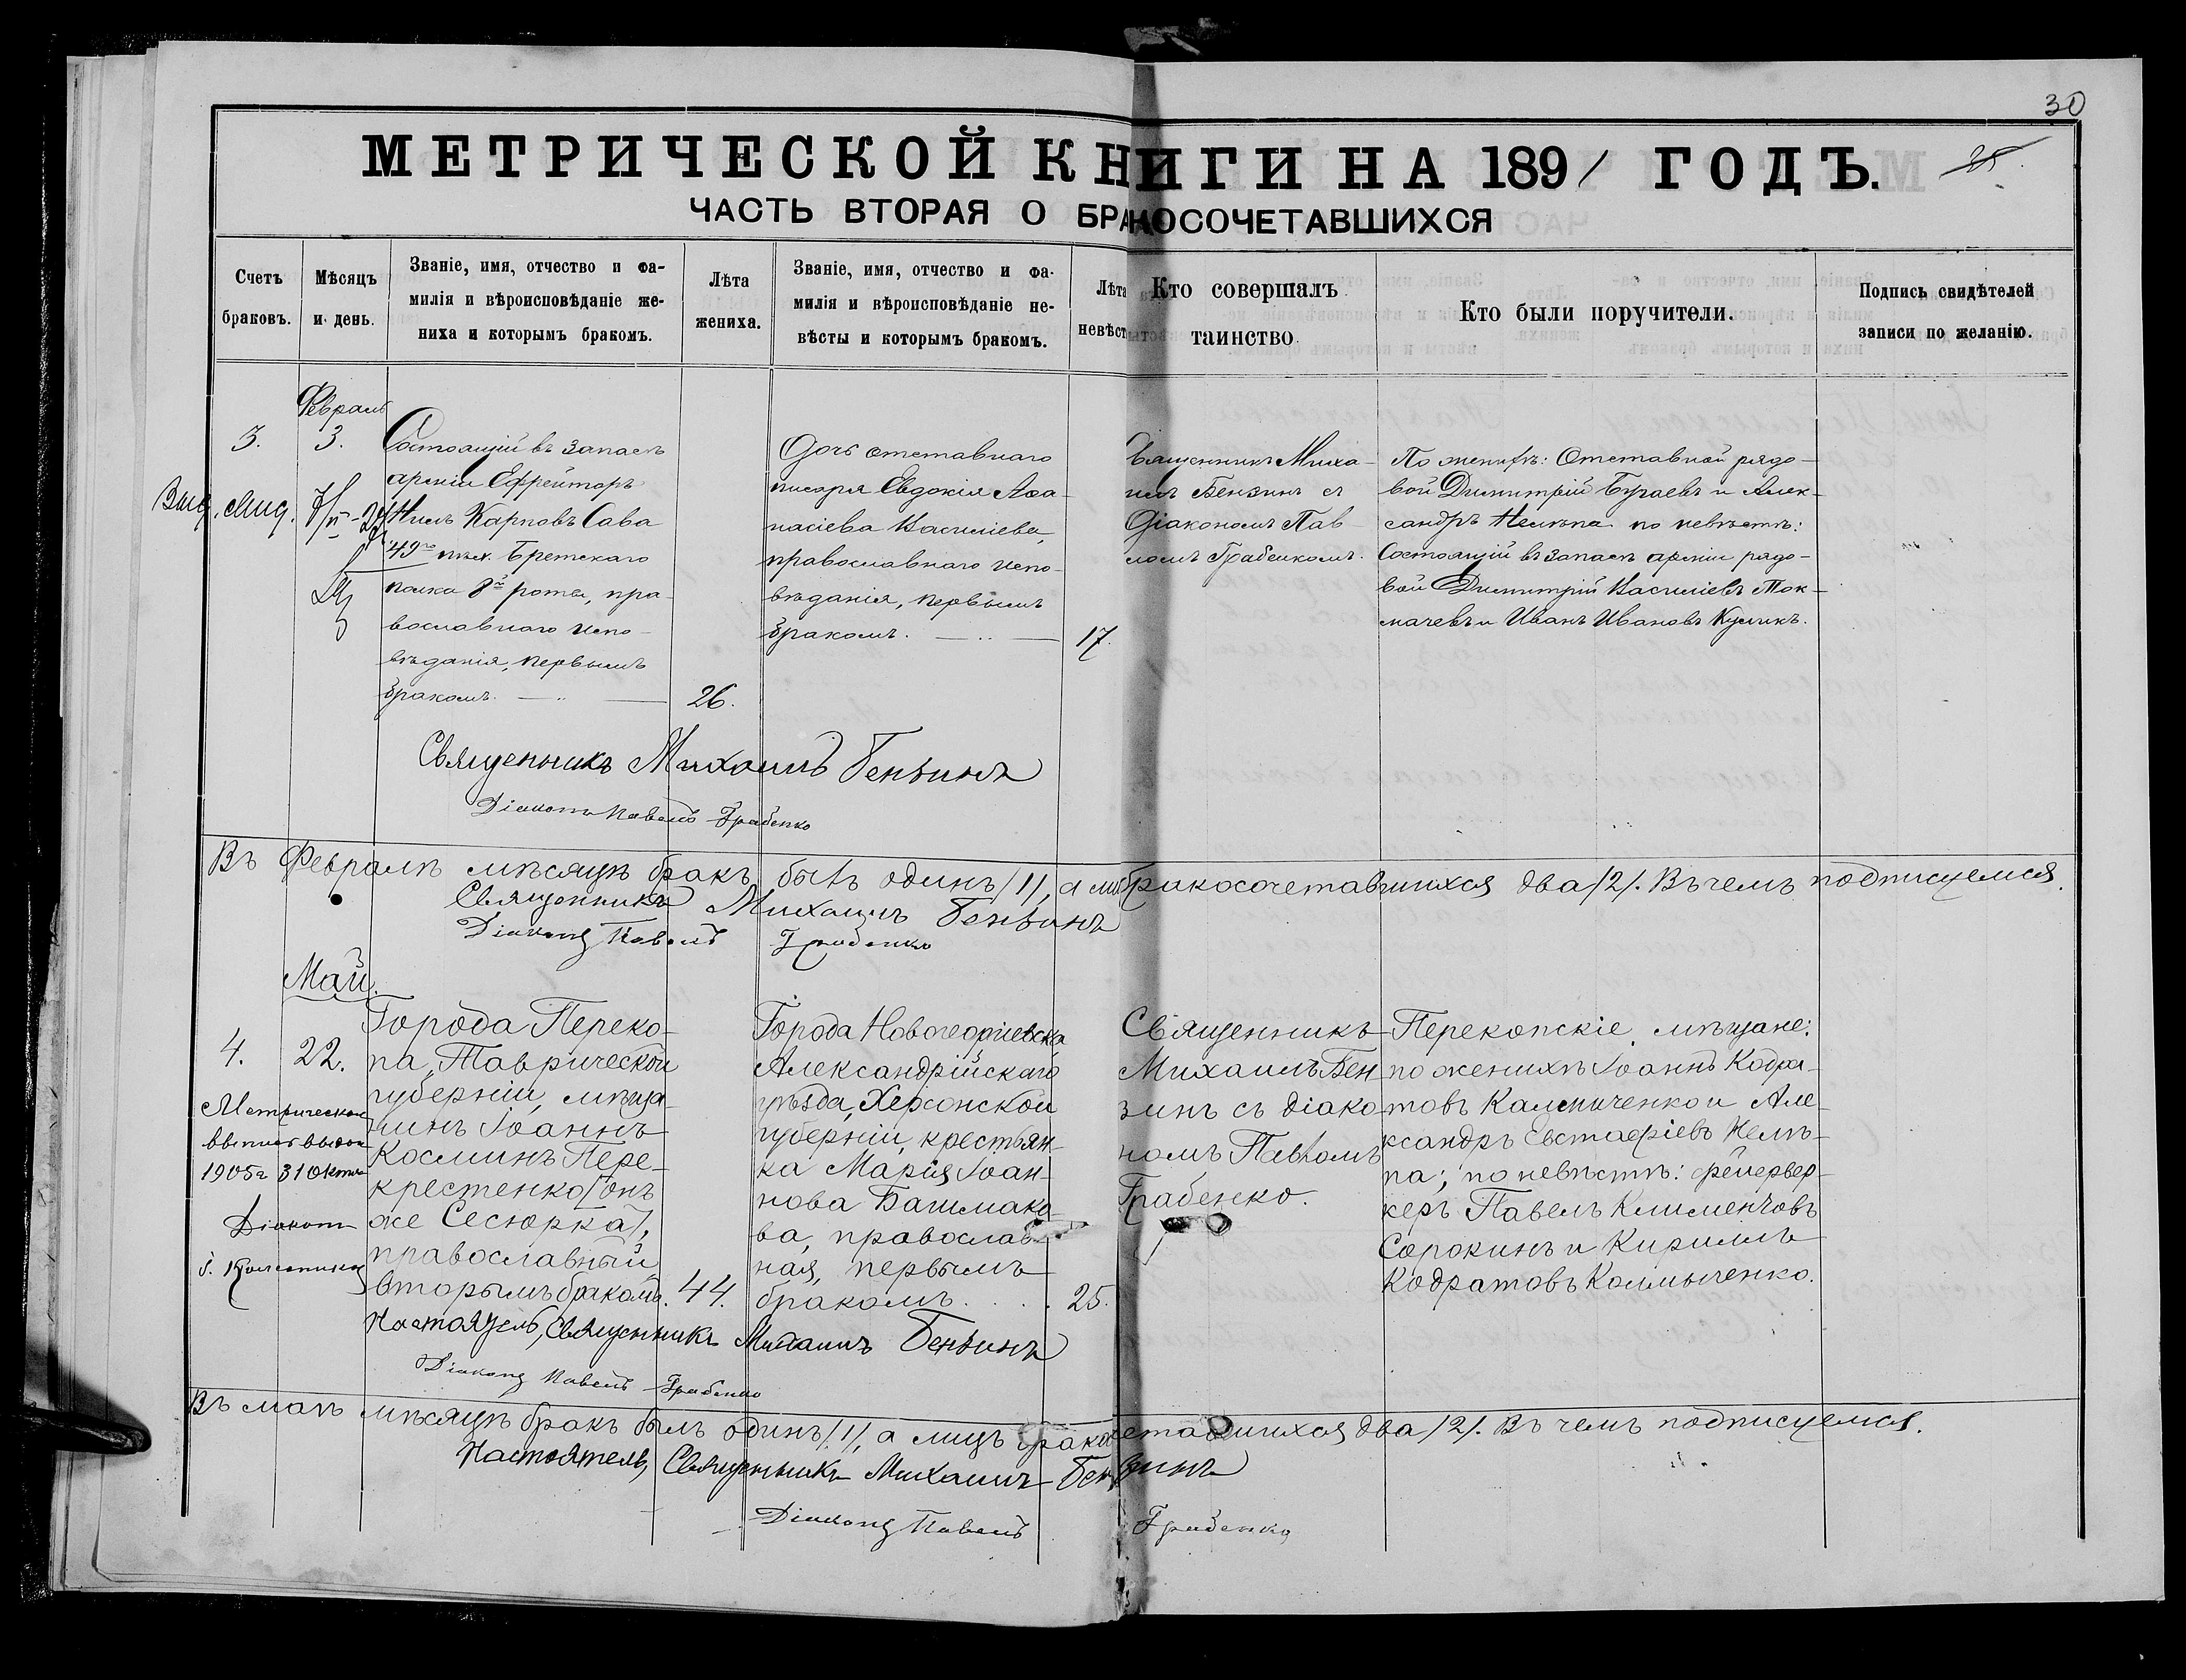 30
МЕТРИЧЕСКОЙ КНИГИ НА 1891 ГОДЪ.
ЧАСТЬ ВТОРАЯ О БРАКОСОЧЕТАВШИХСЯ
Счетъ
браковъ.
Мѣсяцъ
и день.
Званіе, имя, отчество и фа-
милія и вѣроисповѣданіе же-
ниха и которымъ бракомъ.
Лѣта
жениха.
Званіе, имя, отчество и фа-
милія и вѣроисповѣданіе не-
вѣсты и которымъ бракомъ.
Лѣта
невѣст
Кто совершалъ
таинство
Кто были поручители.
Подпись свидѣтелей
записи по желанію.
Февраль
3.
3.
Состоящій въ запасѣ
арміи Ефрейторъ
Нилъ Карповъ Сава
49го пѣх. Брестскаго
полка 8й роты, пра-
вославнаго испо-
вѣданія, первымъ
бракомъ.
26.
Дочь отставнаго
писаря Евдокія Аѳа-
насіева Василіева,
православнаго испо-
вѣданія, первымъ
бракомъ.
17.
Священникъ Миха-
илъ Бензинъ съ
Діакономъ Пав-
ломъ Грабенкомъ.
По женихѣ: Отставной рядо-
вой Димитрій Бугаевъ и Алек-
сандръ Нелѣпа по невѣстѣ:
Состоящій въ запасѣ арміи рядо-
вой Димитрій Василіевъ Ток-
мачевъ и Иванъ Ивановъ Куликъ.
Священникъ Михаилъ Бензинъ
Діаконъ Павелъ Грабенко
Въ Февралѣ мѣсяцѣ бракъ былъ одинъ /1/, а лицъ бракосочетавшихся два /2/. Въ чемъ подписуемся.
Священникъ Михаилъ Бензинъ
Діаконъ Павелъ Грабенко
Май.
4.
22.
Метрическая
выпись выдан
1905 г 31 Октя
Діаконъ
Города Переко-
па, Таврической
губерніи, мѣща-
нинъ Іоаннъ
Косминъ Пере-
крестенко /онъ
же Сесюрка/,
православный
вторымъ бракомъ.
44.
Города Новогеоргіевска,
Александрійскаго
уѣзда, Херсонской
губерніи, крестьян-
ка Марія Іоан-
нова Башмако-
ва, православ-
ная, первымъ
бракомъ.
25.
Священникъ
Михаилъ Бен-
зинъ съ діако-
номъ Павломъ
Грабенко.
Перекопскіе мѣщане:
по женихѣ Іоаннъ Кодра-
товъ Калмыченко и Але-
ксандръ Евстафіевъ Нелѣ-
па; по невѣстѣ: фейервер-
керъ Павелъ Климентовъ
Сорокинъ и Кириллъ
Кодратовъ Калмыченко.
Настоятель, Священникъ Михаилъ Бензинъ
Діаконъ Павелъ Грабенко
Въ маѣ мѣсяцѣ бракъ былъ одинъ /1/, а лицъ бракосочетавшихся два /2/. Въ чемъ подписуемся.
Настоятель, Священникъ Михаилъ Бензинъ
Діаконъ Павелъ Грабенко